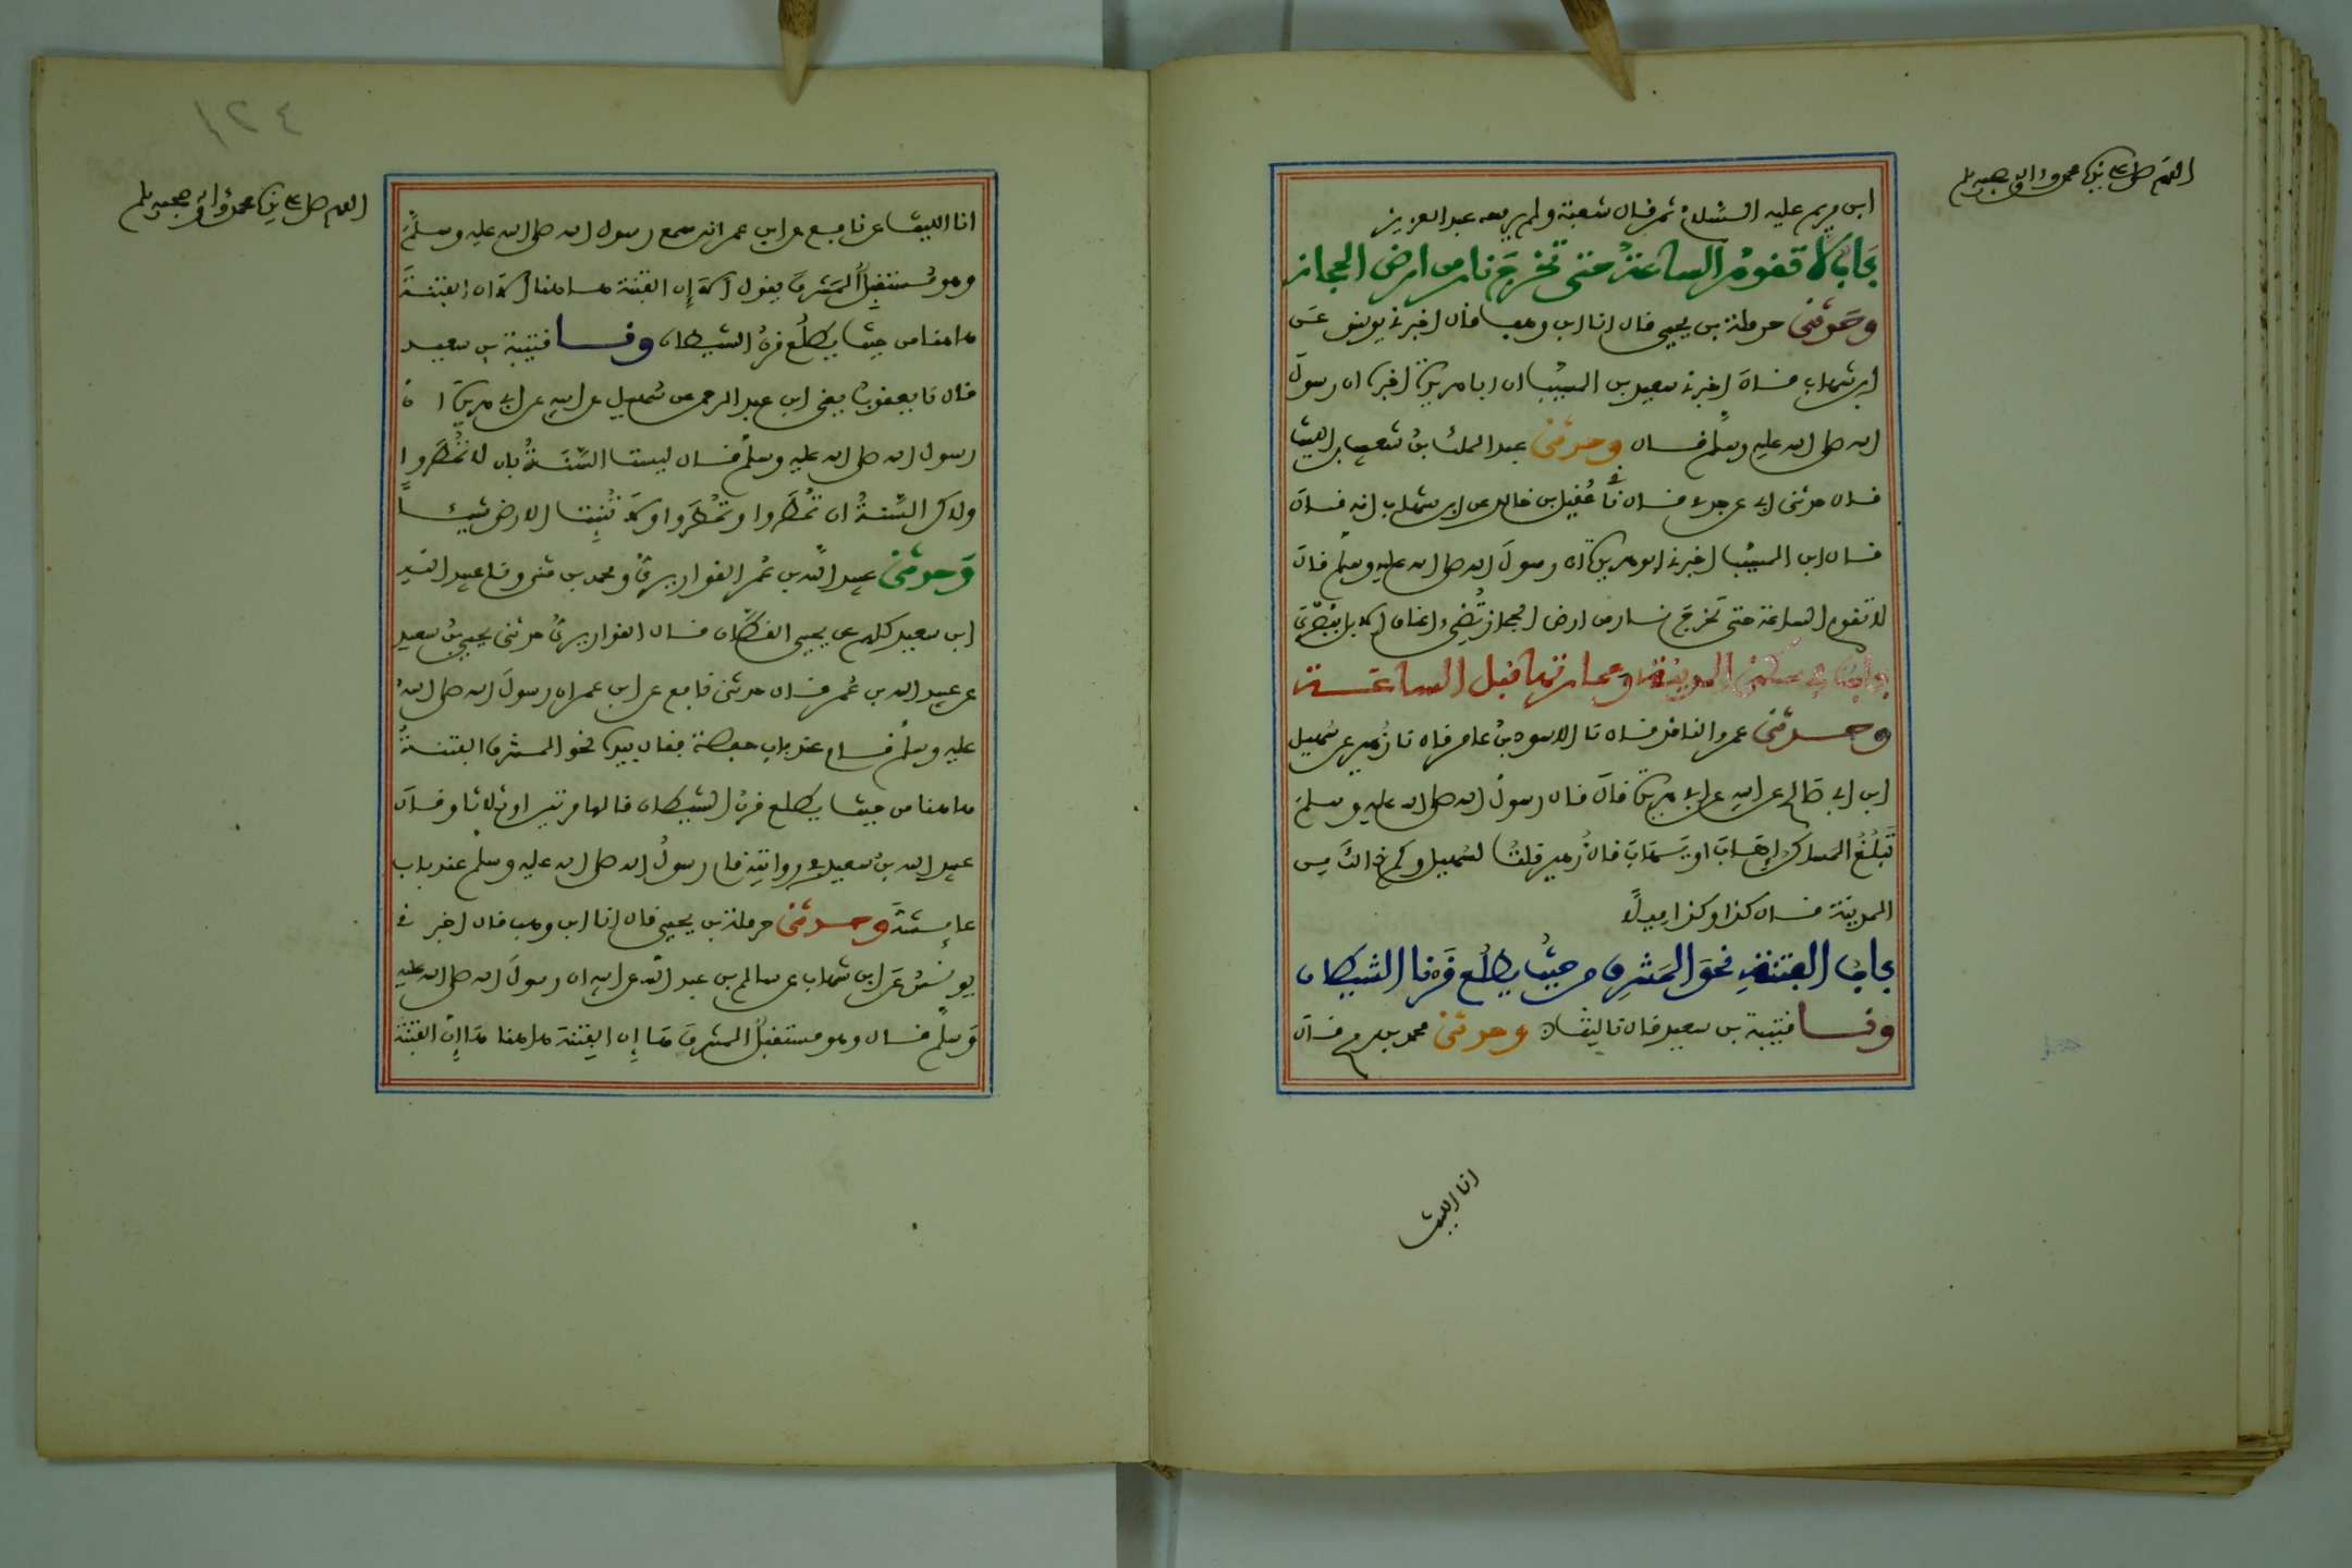 اللهم صل على نبينا محمد وءاله وصحبه وسلم
ابن مريم عليه السلام ثم قال شعبة ولم يرفعه عبد العزيز
باب لا تقوم الساعة حتى تخرج نار من ارض الحجاز
وحدثني حرملة بن يحيى قال انا ابن وهب قال اخبرني يونس عن
ابن شهاب قال اخبرني سعيد بن المسيب ان ابا هريرة اخبره ان رسول
الله صلى الله عليه وسلم قال وحدثني عبد الملك بن شعيب بن الليث
قال حدثني ابي عن جدي قال ني عقيل بن خالد عن ابن شهاب انه قال
قال ابن المسيب اخبرني ابو هريرة ان رسول الله صلى الله عليه وسلم قال
لا تقوم الساعة حتى تخرج نار من ارض الحجاز تضيء اعناق الابل ببصرى
باب في سكنى المدينة وعمارتها قبل الساعة
وحدثني عمرو الناقد قال نا الاسود بن عامر قال نا زهير عن سهيل
ابن ابي صالح عن ابيه عن ابي هريرة قال قال رسول الله صلى الله عليه وسلم
تبلغ المساكن إهاب او يهاب قال زهير قلت لسهيل وكم ذلك من
المدينة قال كذا وكذا ميلا
باب الفتنة نحو المشرق من حيث يطلع قرنا الشيطان
ونا قتيبة بن سعيد قال نا ليث ح وحدثني محمد بن رمح قال
انا الليث
١٢٤
اللهم صل على نبينا محمد وءاله وصحبه وسلم
انا الليث عن نافع عن ابن عمر انه سمع رسول الله صلى الله عليه وسلم
وهو مستقبل المشرق يقول الا إن الفتنة هاهنا الا ان الفتنة
هاهنا من حيث يطلع قرن الشيطان ونا قتيبة بن سعيد
قال نا يعقوب يعني ابن عبد الرحمن عن سهيل عن ابيه عن ابي هريرة ان
رسول الله صلى الله عليه وسلم قال ليست السنة بان لا تمطروا
ولاكن السنة ان تمطروا وتمطروا ولا تنبت الارض شيئا
وحدثني عبيد الله بن عمر القواريري ومحمد بن مثنى ونا عبيد الله
ابن سعيد كلهم عن يحيى القطان قال القواريري حدثني يحيى بن سعيد
عن عبيد الله بن عمر قال حدثني نافع عن ابن عمر ان رسول الله صلى الله
عليه وسلم قام عند باب حفصة فقال بيده نحو المشرق الفتنة
هاهنا من حيث يطلع قرن الشيطان قالها مرتين او ثلاثا وقال
عبيد الله بن سعيد في روايته قام رسول الله صلى الله عليه وسلم عند باب
عايشة وحدثني حرملة بن يحيى قال انا ابن وهب قال اخبرني
يونس عن ابن شهاب عن سالم بن عبد الله عن ابيه ان رسول الله صلى الله عليه
وسلم قال وهو مستقبل المشرق ها إن الفتنة هاهنا ها إن الفتنة